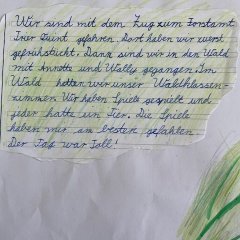 Wir sind mit dem Zug zum Forstamt
Trier Quint gefahren. Dort haben wir zuerst
gefrühstückt. Dann sind wir in den Wald
mit Annette und Wally gegangen. Im
Wald hatten wir unser Waldklassen-
zimmer. Wir haben Spiele gespielt und
jeder hatte ein Tier. Die Spiele
haben mir am besten gefallen.
Der Tag war toll!